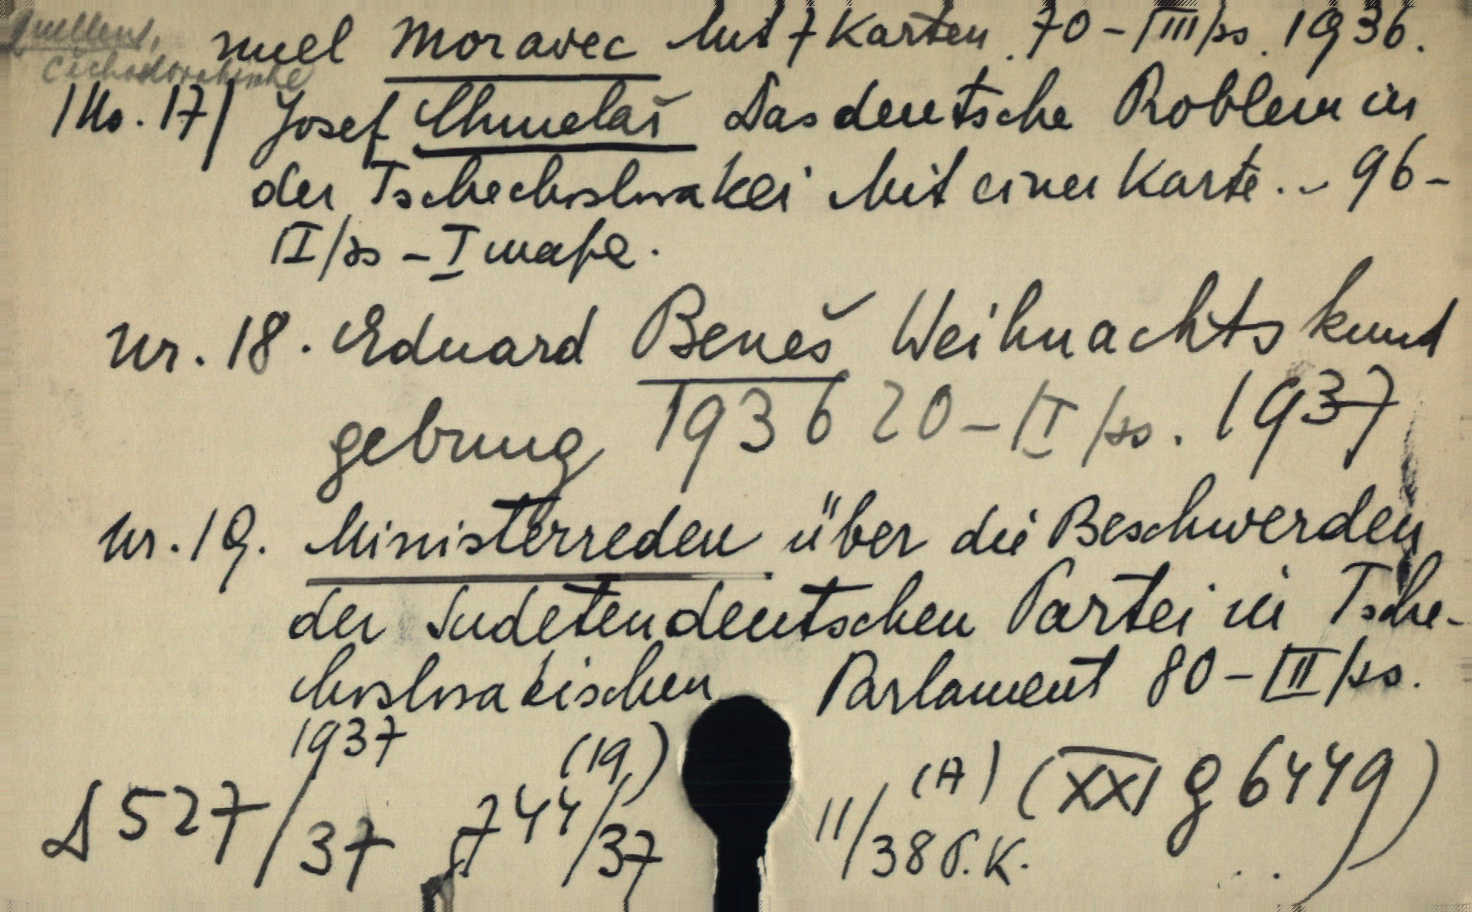 Quellenu.
Čechoslovakische
nuel Moravec Mit 7 Karten. 70-|III|ss. 1936.
|No. 17| Josef Chmelař Das deutsche Problem in
der Tschechoslovakei Mit einer Karte. - 96-
|I|ss - I mapa.
Nr. 18. Eduard Beneš Weihnachtskund
gebung 1936 20-|I|ss. 1937
Nr. 19. Ministerreden über die Beschwerden
der Sudetendeutschen Partei in Tsche-
choslovakischen Parlament 80-|II|ss.
1937 (19) (A) (XXI g 6449)
D 527/37 744/37 11/38 б.к.